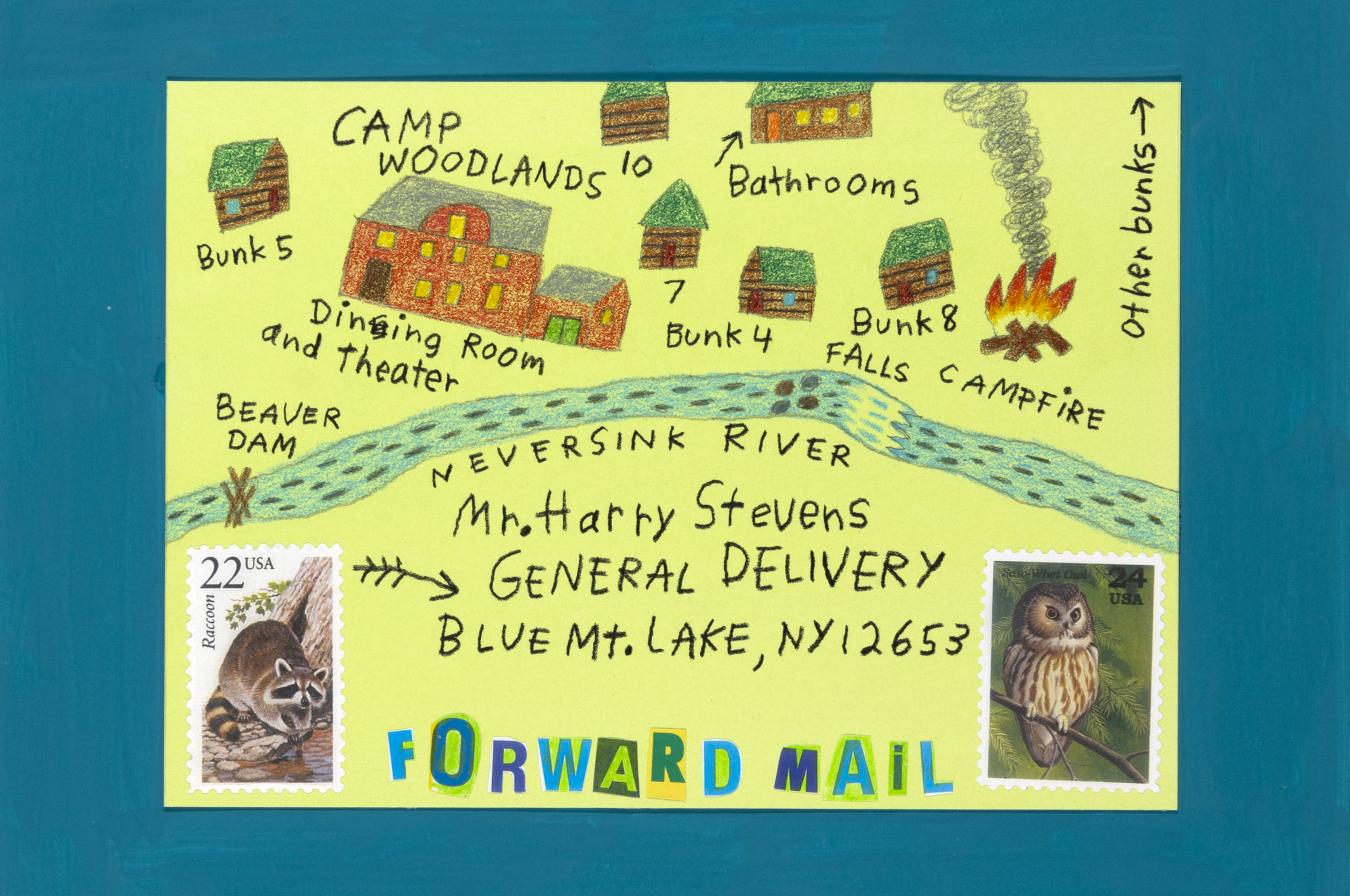 CAMP
WOODLANDS
10
Bathrooms
Other bunks
Bunk 5
7
Bunk 4
Bunk 8
Dining Room
and Theater
FALLS
CAMPFIRE
BEAVER
DAM
NEVERSINK RIVER
Mr. Harry Stevens
GENERAL DELIVERY
BLUE Mt. LAKE, NY 12653
22 USA
Raccoon
Saw-Whet Owl
24
USA
FORWARD MAIL